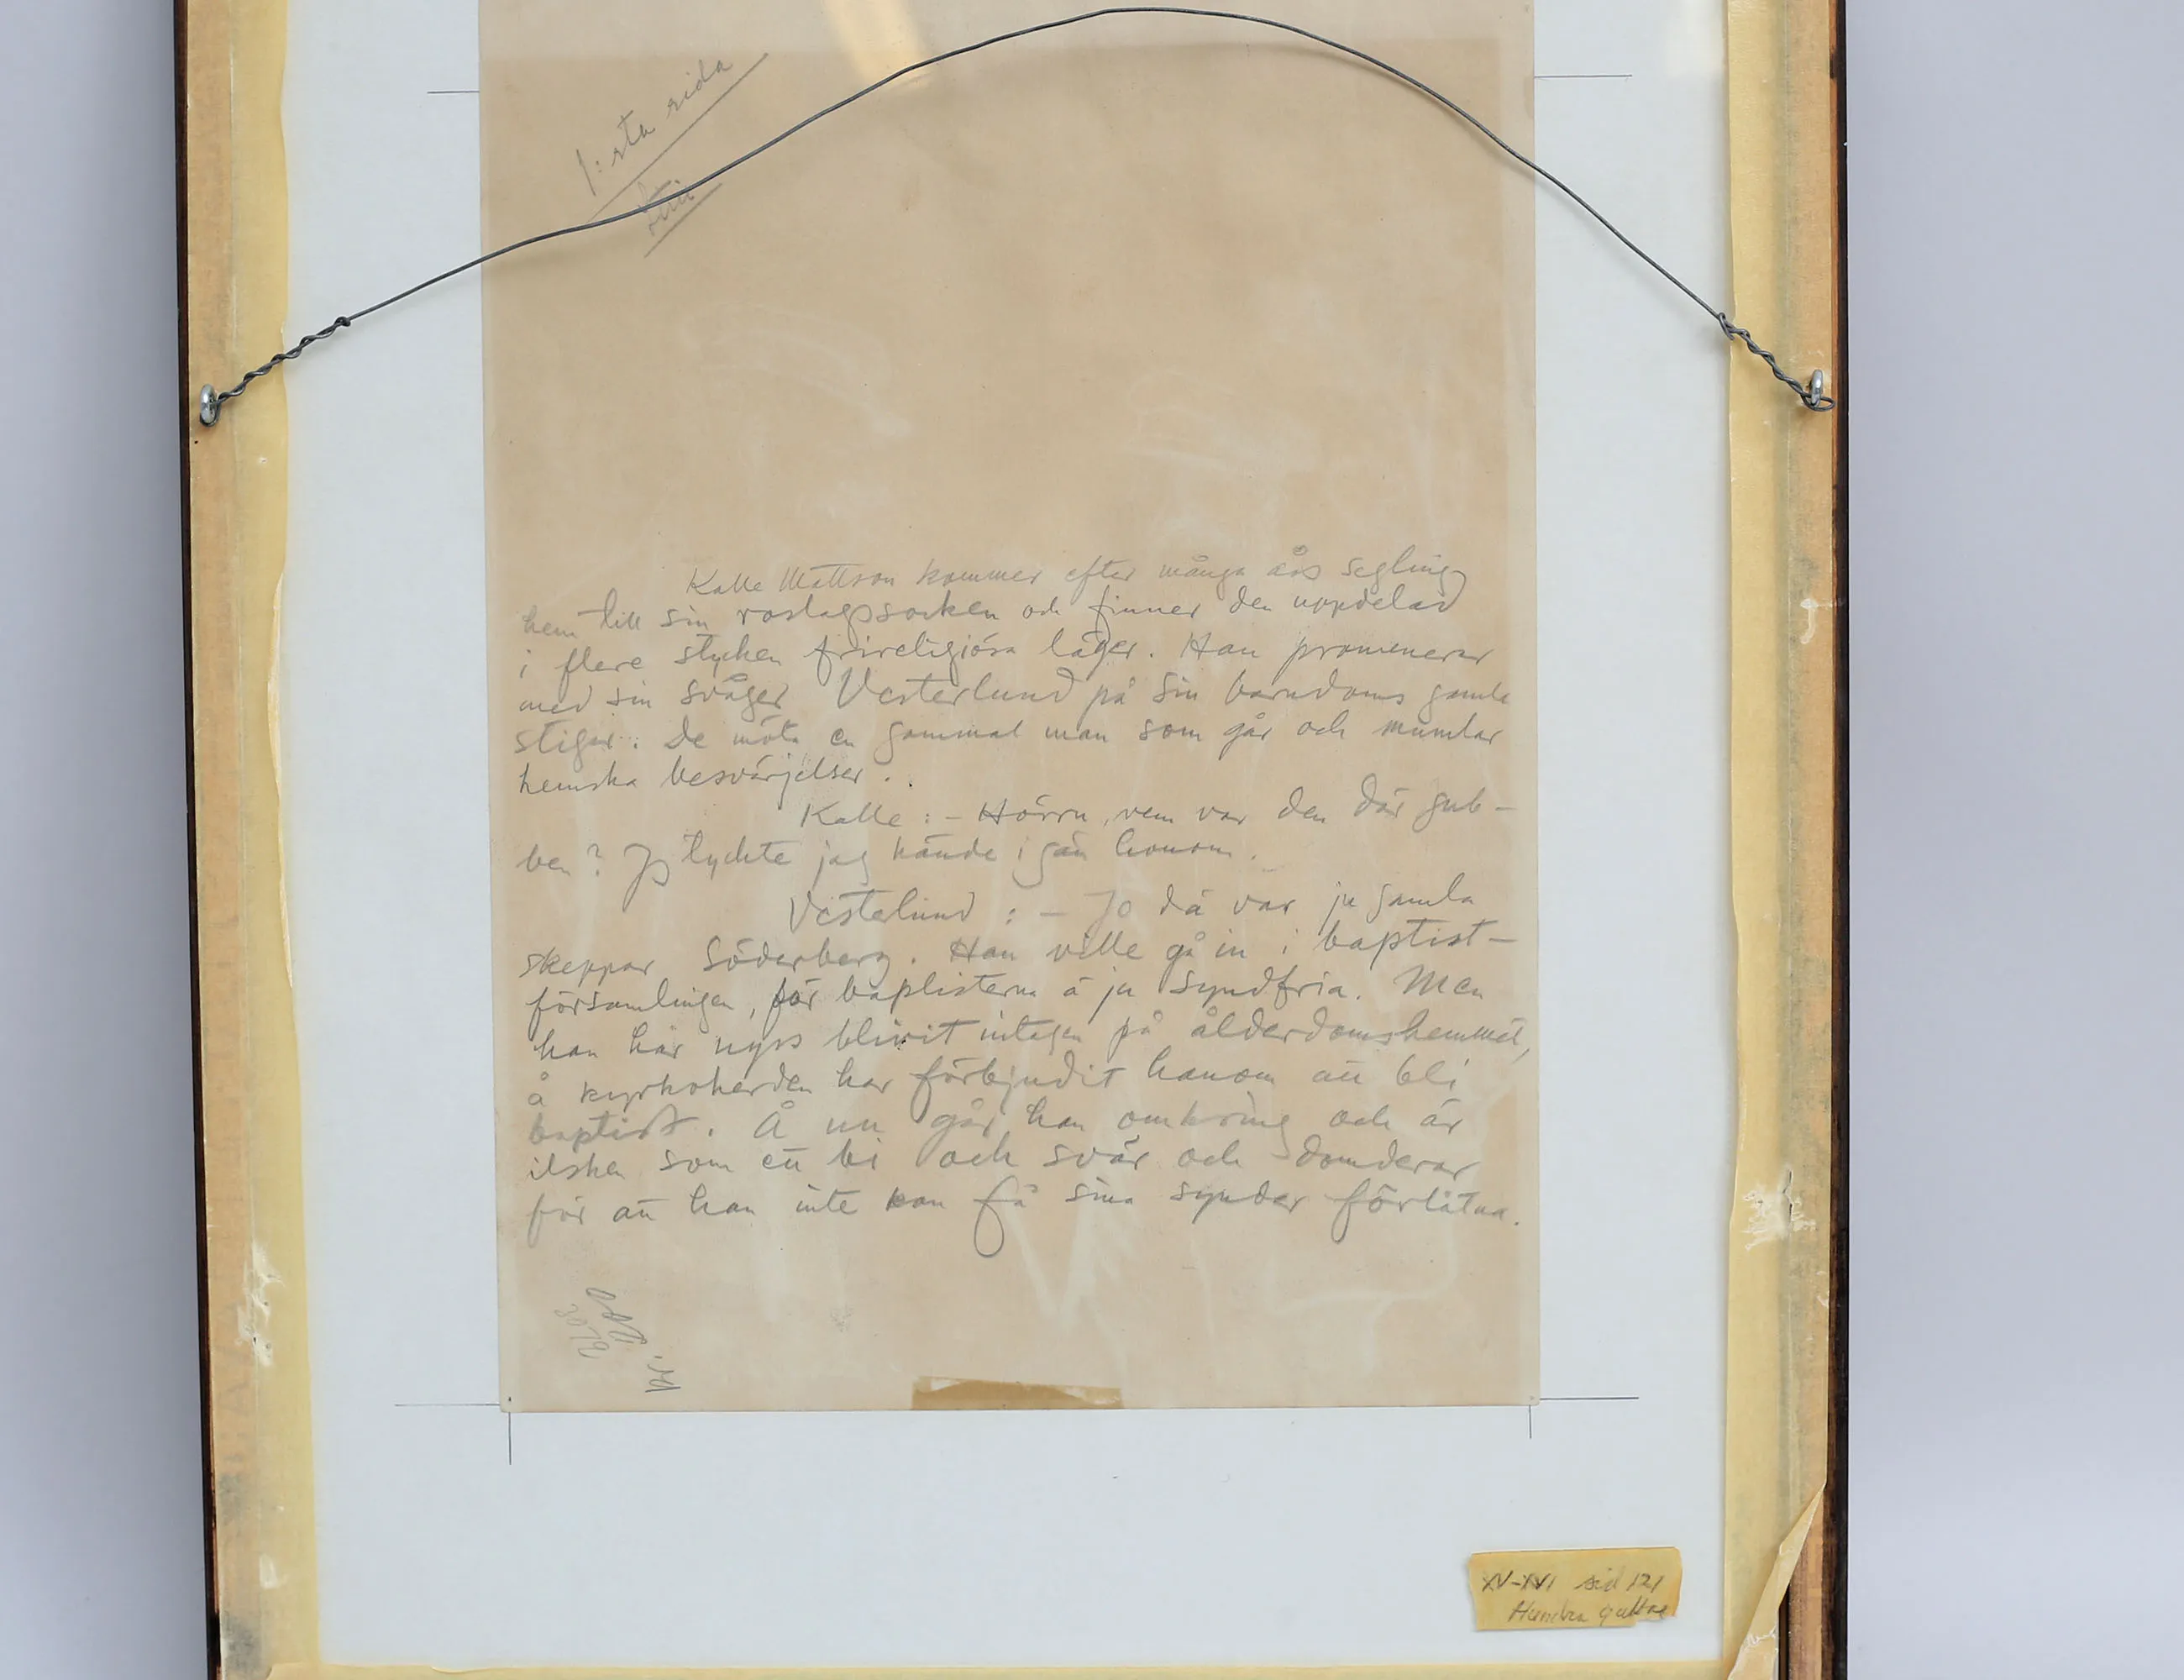 1:sta sida
Kalle Mattson kommer efter många års segling
hem till sin roslagssocken och finner den uppdelad
i flere stycken frireligiösa läger. Han promenerar
med sin svåger Vesterlund på sin barndoms gamla
stigar. De möta en gammal man som går och mumlar
hemska besvärjelser.
Kalle: – Hörru, vem var den där gub-
ben? Jag tyckte jag kände igän honom.
Vesterlund: – Jo dä var ju gamla
skeppar Söderberg. Han ville gå in i baptist-
församlingen, för baptisterna ä ju syndfria. Men
han har nyss blivit intagen på ålderdomshemmet,
å kyrkoherden har förbjudit honom att bli
baptist. Å nu går han omkring och är
ilsken som ett bi och svär och domderar
för att han inte kan få sina synder förlåtna.
XV-XVI sid 121
Humbra